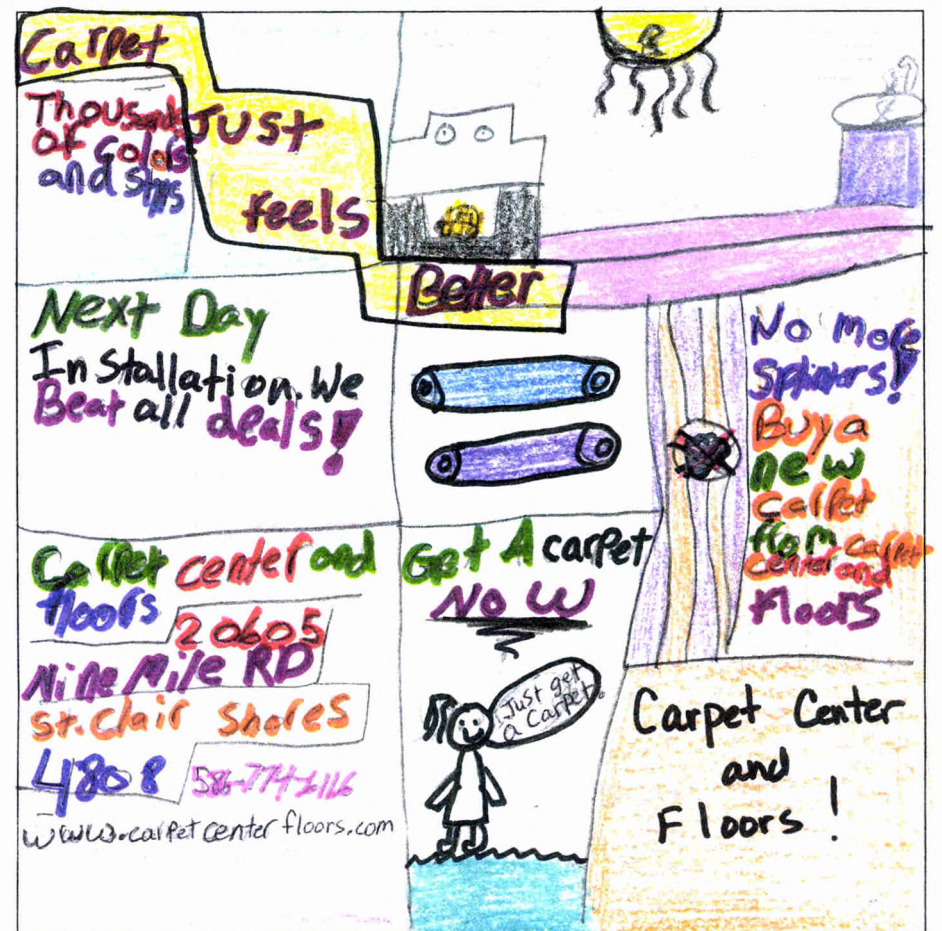 Carpet
Just
feels
Better
Thousands
of colors
and styls
Next Day
Installation. We
Beat all deals!
No More
Splinters!
Buy a
new
carpet
from carpet
center and
Floors
Carpet center and
floors
20605
Nine Mile RD
St. Clair Shores
4808
www.carpetcenterfloors.com
Get A carpet
NoW
Just get
a Carpet.
Carpet Center
and
Floors!